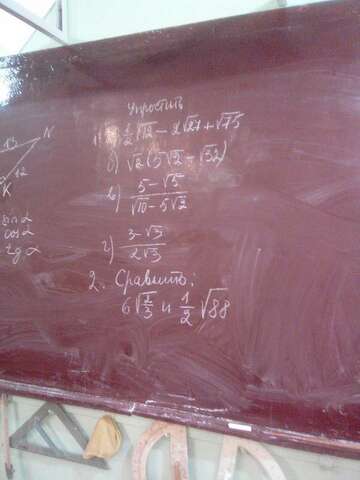 Упростить
1. 1/2√12 − 2√27 + √75
б) √2(5√2 − √32)
в) (5−√5)/(√10−5√2)
г) (3−√3)/(2√3)
2. Сравнить:
6√(2/3) и 1/2√88
13 N
12
K
sin α
cos α
tg α